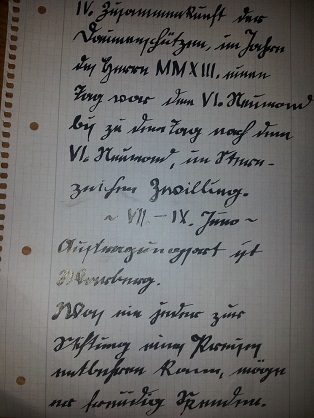 IV. Zusammenkunft der
Daumenschützen, im Jahre
des Herrn MMXIII. einen
Tag vor dem VI. Neumond
bis zu dem Tag nach dem
VI. Neumond, im Stern-
zeichen Zwilling.
~ VII. – IX. Juno ~
Austragungsort ist
Marberg.
Was nie jeder zur
Stiftung eines Preises
entbehren kann, möge
er freudig spenden.